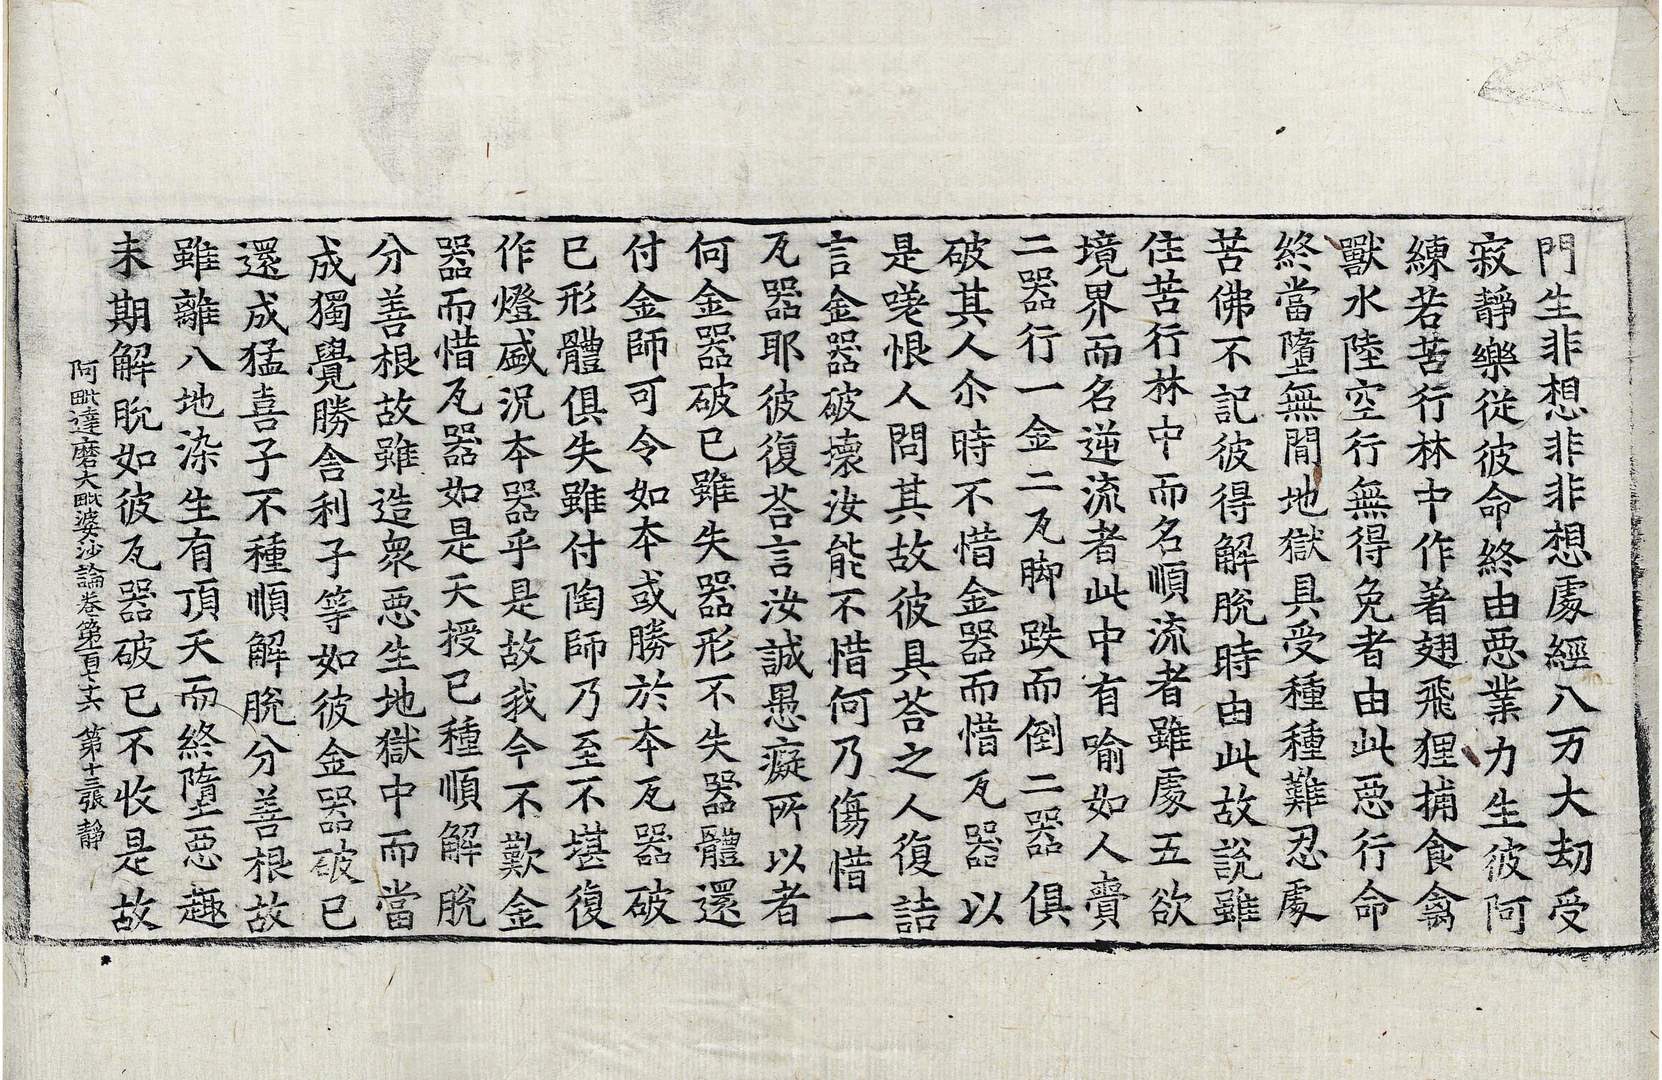 門生非想非非想處經八万大劫受
寂靜樂從彼命終由惡業力生彼阿
練若苦行林中作著翅飛狸捕食禽
獸水陸空行無得免者由此惡行命
終當墮無間地獄具受種種難忍處
苦佛不記彼得解脫時由此故說雖
住苦行林中而名順流者雖處五欲
境界而名逆流者此中有喻如人賷
二器行一金二瓦脚跌而倒二器俱
破其人尒時不惜金器而惜瓦器以
是嗟恨人問其故彼具荅之人復詰
言金器破壞汝能不惜何乃傷惜一
瓦器耶彼復荅言汝誠愚癡所以者
何金器破已雖失器形不失器體還
付金師可令如本或勝於本瓦器破
已形體俱失雖付陶師乃至不堪復
作燈盛況本器乎是故我今不歎金
器而惜瓦器如是天授已種順解脫
分善根故雖造衆惡生地獄中而當
成獨覺勝舍利子等如彼金器破已
還成猛喜子不種順解脫分善根故
雖離八地染生有頂天而終墮惡趣
未期解脫如彼瓦器破已不收是故
阿毗達磨大毗婆沙論卷第一百七十六 第十三張 靜